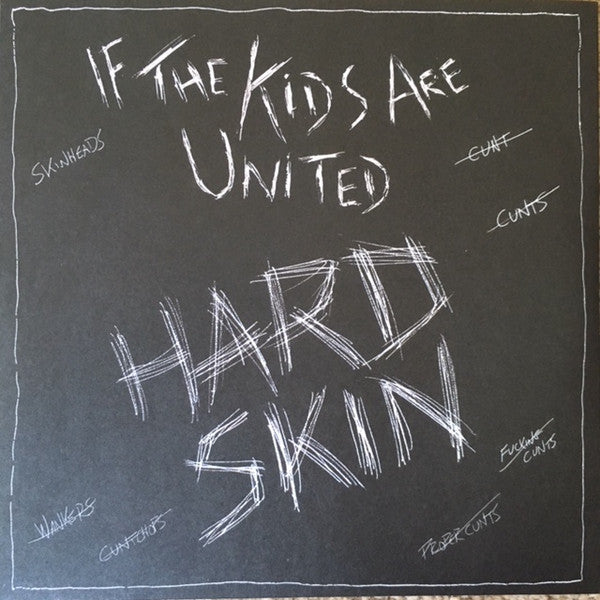 IF THE KIDS ARE
UNITED
SKINHEADS
CUNT
CUNTS
HARD
SKIN
FUCKING
CUNTS
WANKERS
CUNTCHOPS
PROPER CUNTS